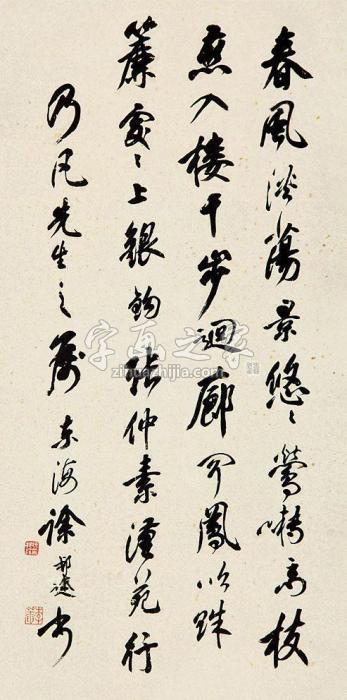 春風淡蕩景悠〻鶯囀高枝
燕入樓千步迴廊聞鳳吹珠
簾處〻上銀鈎張仲素漢苑行
乃凡先生之屬東海徐邦達書
字画之家
zihuazhijia.com